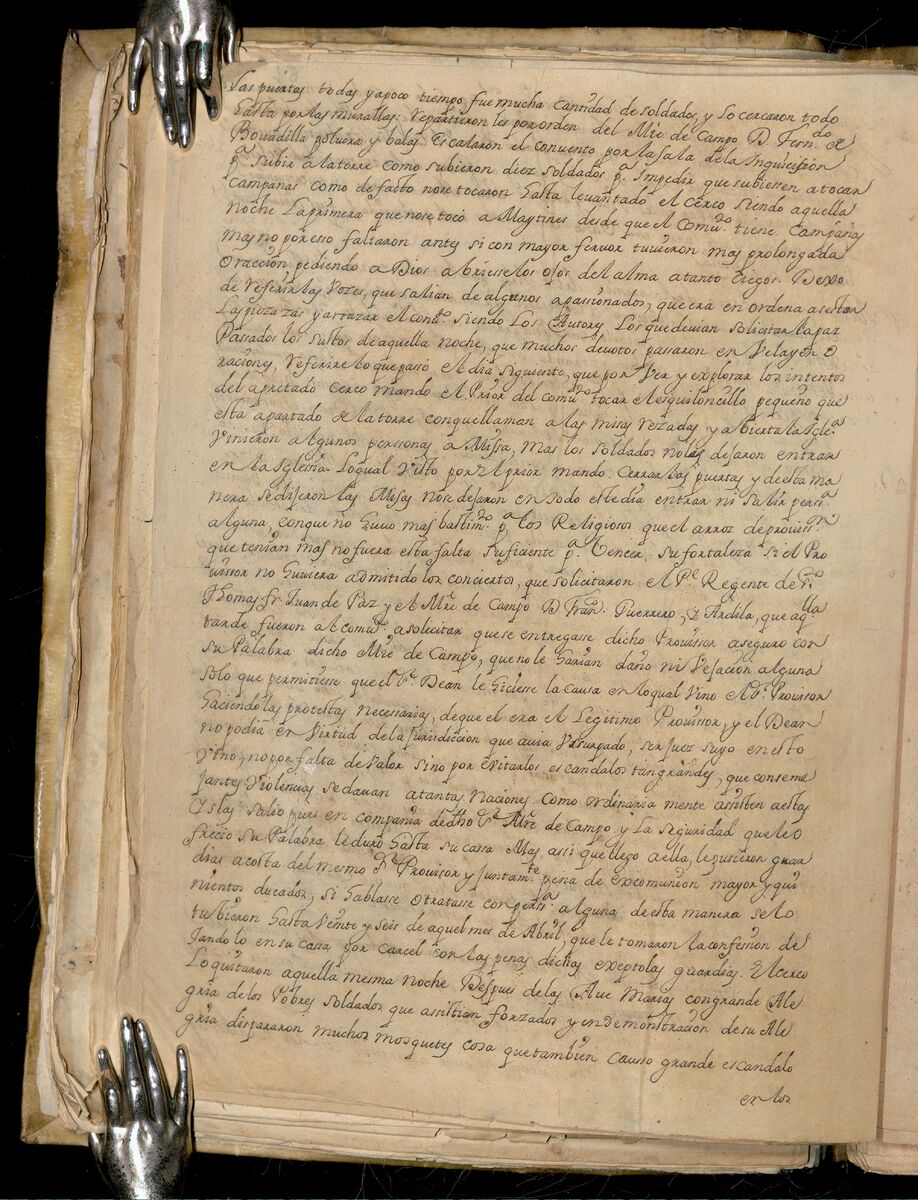 las puertas todas y apoco tiempo fue mucha cantidad de soldados, y lo cercaron todo
hasta por las murallas: repartieron les por orden del Mre de Campo D. Fern.do de
Bouadilla poluora y balas. Escalaron el conuento por la sala de la Inquisicion
p.a subir a la torre como subieron diez soldados p.a Impedir que subiessen a tocar
campanas como de facto no se tocaron hasta leuantado el Cerco siendo aquella
noche la primera que no se tocò a Maytines desde que el Comu.to tiene Campanas
mas no por esso faltaron antes si con mayor feruor tuuieron mas prolongada
Oraccion pediendo a Dios abriesse los ojos del alma a tanto Ciegos. Dexo
de referir las Vozes, que salian de algunos apassionados, que era en orden a asestar
las piezazas y arrazar el conu.to siendo Los Autores Los que deuian solicitar la paz
Passados los sustos de aquella noche, que muchos deuotos passaron en Vela y en O
raciones, referire lo que pasò el dia siguiente, que por Ver y explorar los intentos
del apretado Cerco mando el Prior del comu.to tocar el esquiloncillo pequeño que
està apartado de la torre con que llaman a las missas rezadas y abierta la Igle.a
Vinieron algunos perssonas à Missa, mas los soldados no las dejaron entrar
en la Iglesia. Lo qual Visto por el prior mando. Cerrar las puertas y de esta ma
nera se dijeron las Missas no se dejaron en todo este dia entrar ni salir pers.a
alguna, conque no huuo mas bastim.to p.a los Religiosos que el arroz de prouiss.on
que tenian mas no fuera esta falta suficiente p.a Vencer su fortaleza si el Pro
uissor no huuiera admitido los conciertos, que solicitaron el P.e Regente de S.to
Thomas fr. Juan de Paz y el Mre de Campo D Fran.co Guerrero, y Ardila, que aq.lla
tarde fueron al comu.to a solicitar que se entregasse dicho Prouissor aseguro con
su Palabra dicho Mre de Campo, que no le harian daño ni Vejacion alguna
solo que permitiesse que el S.r Dean le hiciesse la causa en lo qual Vino el S.r Prouissor
haciendo las protestas necessarias, de que el era el Legitimo Prouissor, y el Dean
no podia en Virtud de la jurisdiccion que auia Vsurpado, ser juez suyo en esto
Vino, no por falta de Valor sino por éuitar los escandalos tan grandes, que con seme
jantes Violencias se dauan a tantas Naciones. Como ordinaria mente assisten aestas
Yslas salio pues en compania de dho S.r Mre de Campo y La seguridad que le o
frecio su Palabra le durò hasta su cassa Mas assi que llego a ella, le pusieron guar
dias acosta del mesmo S.r Prouissor y juntam.te pena de excomunion mayor y qui
nientos ducados, si hablasse o tratasse con pers.a alguna de esta manera se lo
tubieron hasta Veinte y seis de aquel mes de Abril, que le tomaron la confession de
jandolo en su cassa por carcel con las penas dichas exepto las guardias. El cerco
Lo quitaron aquella mesma noche Despues de las Aue Marias con grande Ale
gria de los Pobres soldados que assistian forzados y en demonstracion de su Ale
gria dispararon muchos mosquetes cosa que tambien causo grande escandalo
en los